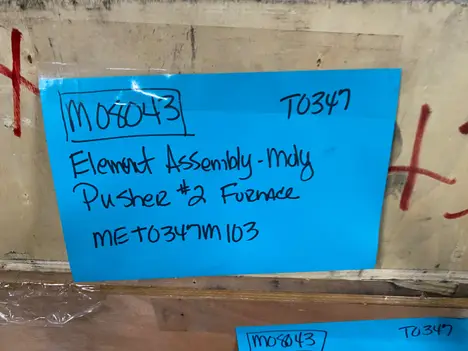 M08043 T0347
Element Assembly - Mdy
Pusher #2 Furnace
MET0347M103
M08043 T0347